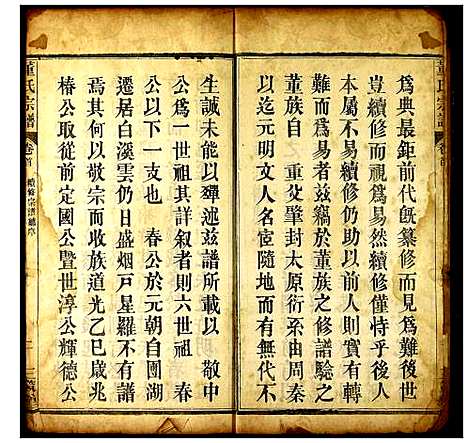 爲典最鉅前代旣纂修而見爲難後世
豈續修而視爲易然續修僅恃乎後人
本屬不易續修仍助以前人則實有轉
難而不爲易者兹竊於董族之修譜驗之
董族自　重父肇封太原衍系由周秦
以迄元明文人名宦隨地而有無代不
生誠未能以殫述兹譜所載以　敬中
公爲一世祖其詳叙者則六世祖　春
公以下一支也　春公於元朝自團湖
遷居白溪雲仍日盛烟戸星羅不有譜
焉其何以敬宗而收族道光乙巳歲兆
椿公從前定國公暨世淳公輝德公
董氏宗譜
卷首
續修宗譜總序
董氏宗譜
卷首